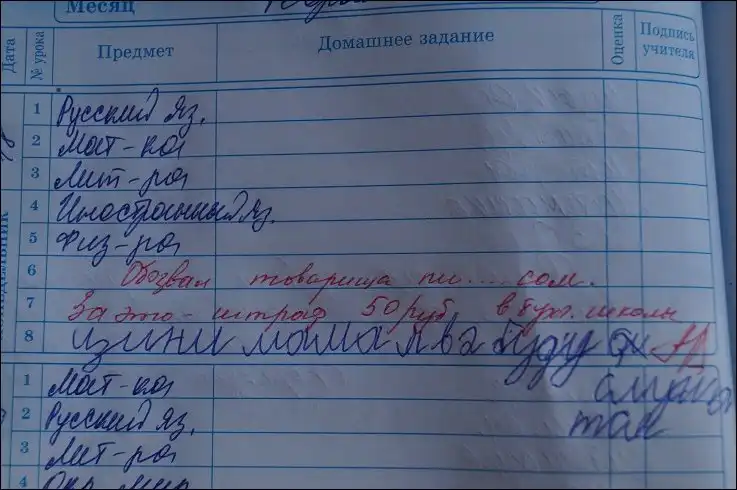 Месяц
Дата
№ урока
Предмет
Домашнее задание
Оценка
Подпись учителя
1 Русский яз.
2 Мат-ка
3 Лит-ра
4 Иностранный яз.
5 Физ-ра
6 Обозвал товарища пи....сом.
7 За это - штраф 50 руб. в бух. школы
8 изини мама я ва буду
1 Мат-ка
2 Русский яз.
так
3 Лит-ра
4 Окр. мир